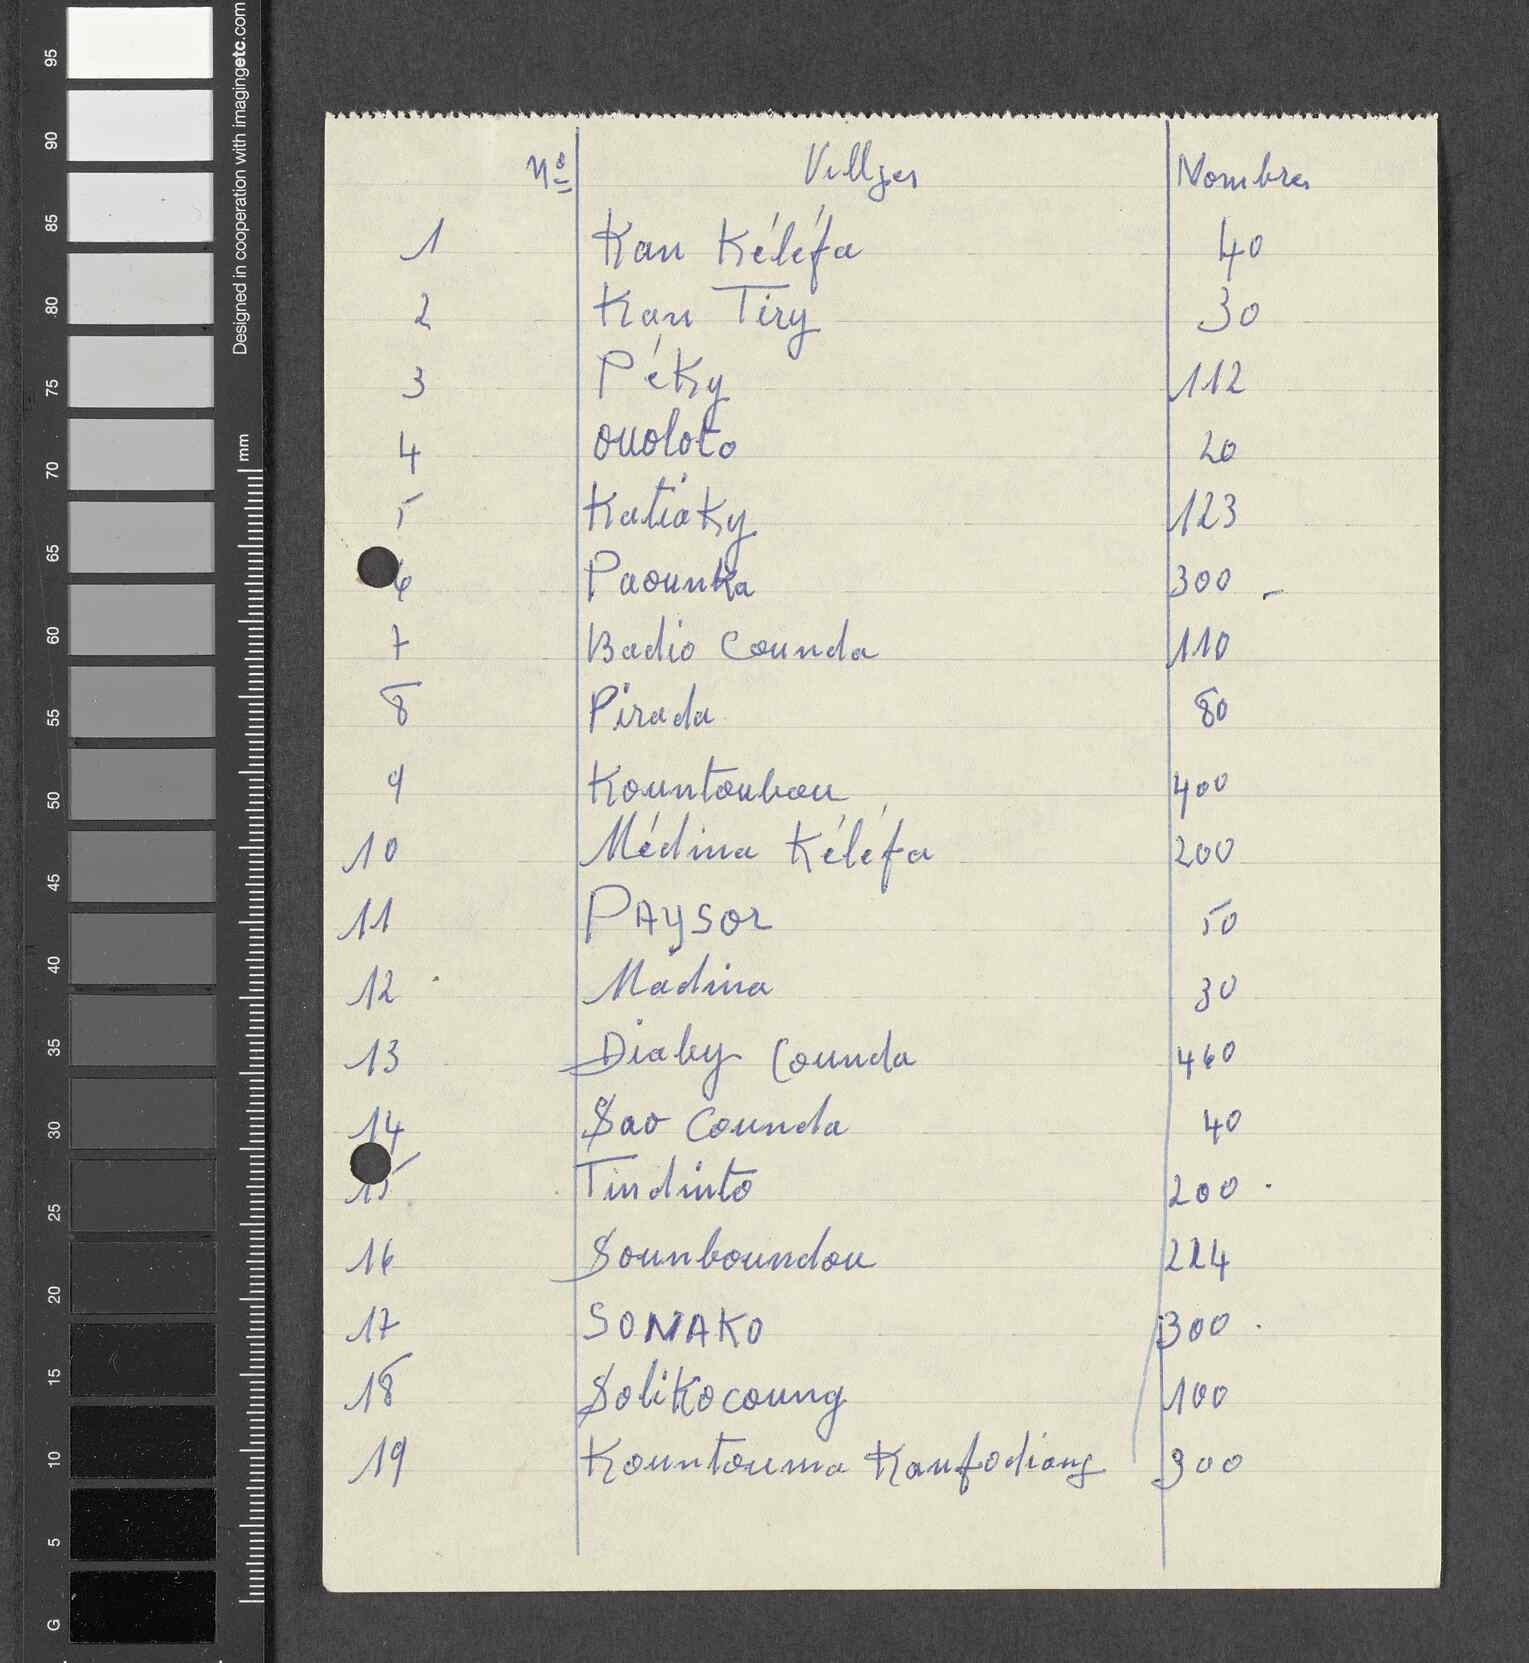 Nº Villges Nombres
1 Kan Kéléfa 40
2 Kan Tiry 30
3 Péky 112
4 ouoloto 20
5 Katiaky 123
6 Paounka 300 -
7 Badio Counda 110
8 Pirada 80
9 Kountoubou 400
10 Médina Kéléfa 200
11 PAYSOR 50
12 Madina 30
13 Diaby Counda 460
14 Sao Counda 40
15 Tindinto 200 .
16 Sounboundou 224
17 SONAKO 300 .
18 Solikocoung 100
19 Kountouma Kanfodiang 300
Designed in cooperation with imagingetc.com
mm
95
90
85
80
75
70
65
60
55
50
45
40
35
30
25
20
15
10
5
G